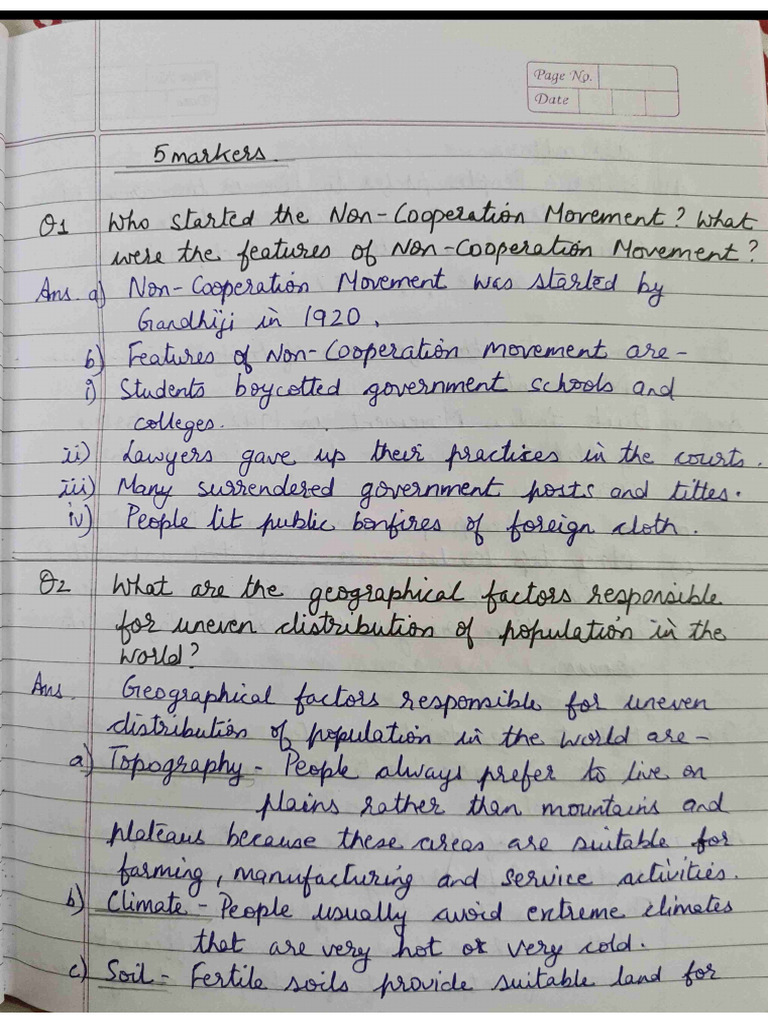 Page No.
Date
5 markers.
Q1 Who started the Non-Cooperation Movement? What
were the features of Non-Cooperation Movement?
Ans. a) Non-Cooperation Movement was started by
Gandhiji in 1920.
b) Features of Non-Cooperation movement are-
i) Students boycotted government schools and
colleges.
ii) Lawyers gave up their practices in the courts.
iii) Many surrendered government posts and titles.
iv) People lit public bonfires of foreign cloth.
Q2 What are the geographical factors responsible
for uneven distribution of population in the
world?
Ans. Geographical factors responsible for uneven
distribution of population in the world are-
a) Topography - People always prefer to live on
plains rather than mountains and
plateaus because these areas are suitable for
farming, manufacturing and service activities.
b) Climate - People usually avoid extreme climates
that are very hot or very cold.
c) Soil - Fertile soils provide suitable land for